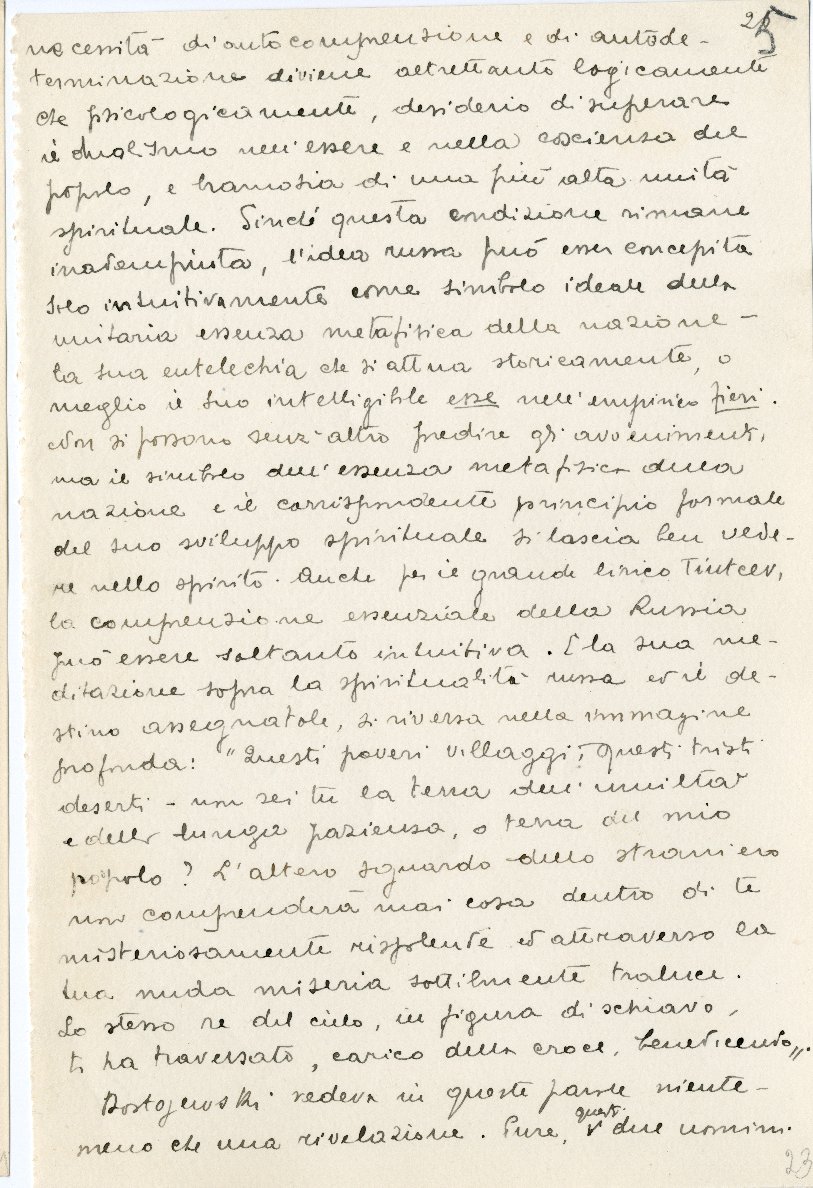 25
necessità di autocomprensione e di autode-
terminazione diviene altrettanto logicamente
che psicologicamente, desiderio di superare
il dualismo nell'essere e nella coscienza del
popolo, e bramosia di una più alta unità
spirituale. Sinché questa condizione rimane
inadempiuta, l'idea russa può esser concepita
solo intuitivamente come simbolo ideale della
unitaria essenza metafisica della nazione -
la sua entelechia che si attua storicamente, o
meglio il suo intelligibile esse nell'empirico fieri.
Non si possono senz'altro predire gli avvenimenti,
ma il simbolo dell'essenza metafisica della
nazione e il corrispondente principio formale
del suo sviluppo spirituale si lascia ben vede-
re nello spirito. Anche per il grande lirico Tiutcev,
la comprensione essenziale della Russia
può essere soltanto intuitiva. E la sua me-
ditazione sopra la spiritualità russa ed il de-
stino assegnatole, si riversa nella immagine
profonda: "Questi poveri villaggi, questi tristi
deserti - non sei tu la terra dell'umiltà
e della lunga pazienza, o terra del mio
popolo? L'altero sguardo dello straniero
non comprenderà mai cosa dentro di te
misteriosamente risplende ed attraverso la
tua nuda miseria sottilmente traluce.
Lo stesso re del cielo, in figura di schiavo,
ti ha traversato, carico della croce, benedicendo".
Dostojewski vedeva in queste parole niente-
meno che una rivelazione. Pure, questi due uomini
23